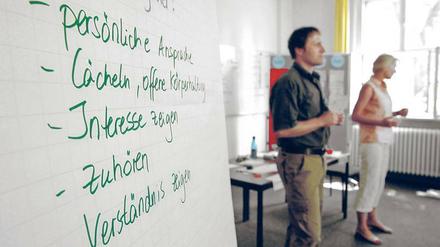 - persönliche Ansprache
- Lächeln, offene Körperhaltung
- Interesse zeigen
- Zuhören
Verständnis zeigen